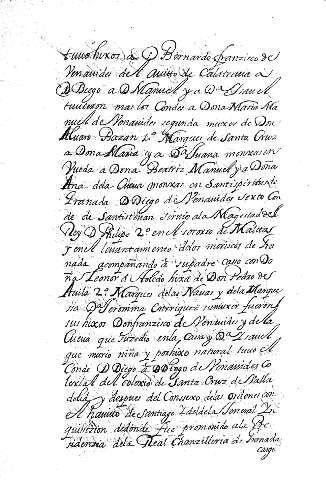 tuvo hixos a D Bernardo francisco de
Venavides del avitto de Calatrava a
D Diego a D Manuel y a D.ª Isavel
tuvieron mas los Condes a Dona Maria Ma
nuel de Venavides segunda muxer de Don
Aluaro Bazan 1.º Marques de Santa Cruz
a Dona Maria y a D.ª Juana monxas en
Vueda a Dona Beatriz Manuel y a Dona
Ana dela Cueva monxas en Santispiritus de
Granada D Diego de Venavides sexto Con
de de Santistevan sirvio ala Magestad del
Rey D Philipe 2.º en el socorro de Malta
y en el levantamiento delos moriscos de Gra
nada acompañando a su padre caso con Do
ña Leonor de Toledo hixa de Don Pedro de
Avila 2.º Marques delas Navas y dela Marque
sa D.ª Jeronima Enrriquez su muxer fueron
sus hixos Don francisco de Venavides y dela
Cueva que suzedio en la Casa y D.ª Isavel
que murio niña y por hixo natural tuvo el
Conde D Diego a D Diego de Venavides Co
lexial del colexio de Santa Cruz de Valla
dolid y despues del Consexo delas ordenes con
el havito de Santiago y del dela General In
quisicion de donde fue promovido ala Pre
sidencia dela Real Chanzilleria de Granada
cargo